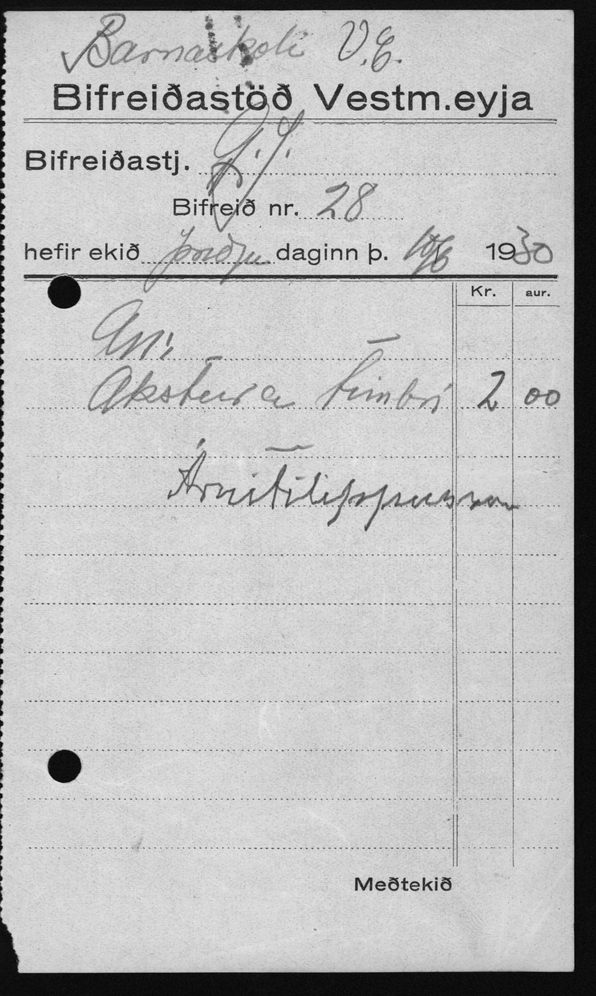 Barnaskóli V.E.
Bifreiðastöð Vestm.eyja
Bifreiðastj. G.J.
Bifreið nr. 28
hefir ekið þriðju daginn þ. 10/6 1930
Kr. aur.
Akstur á timbri 2 00
Árni Filippusson
Meðtekið